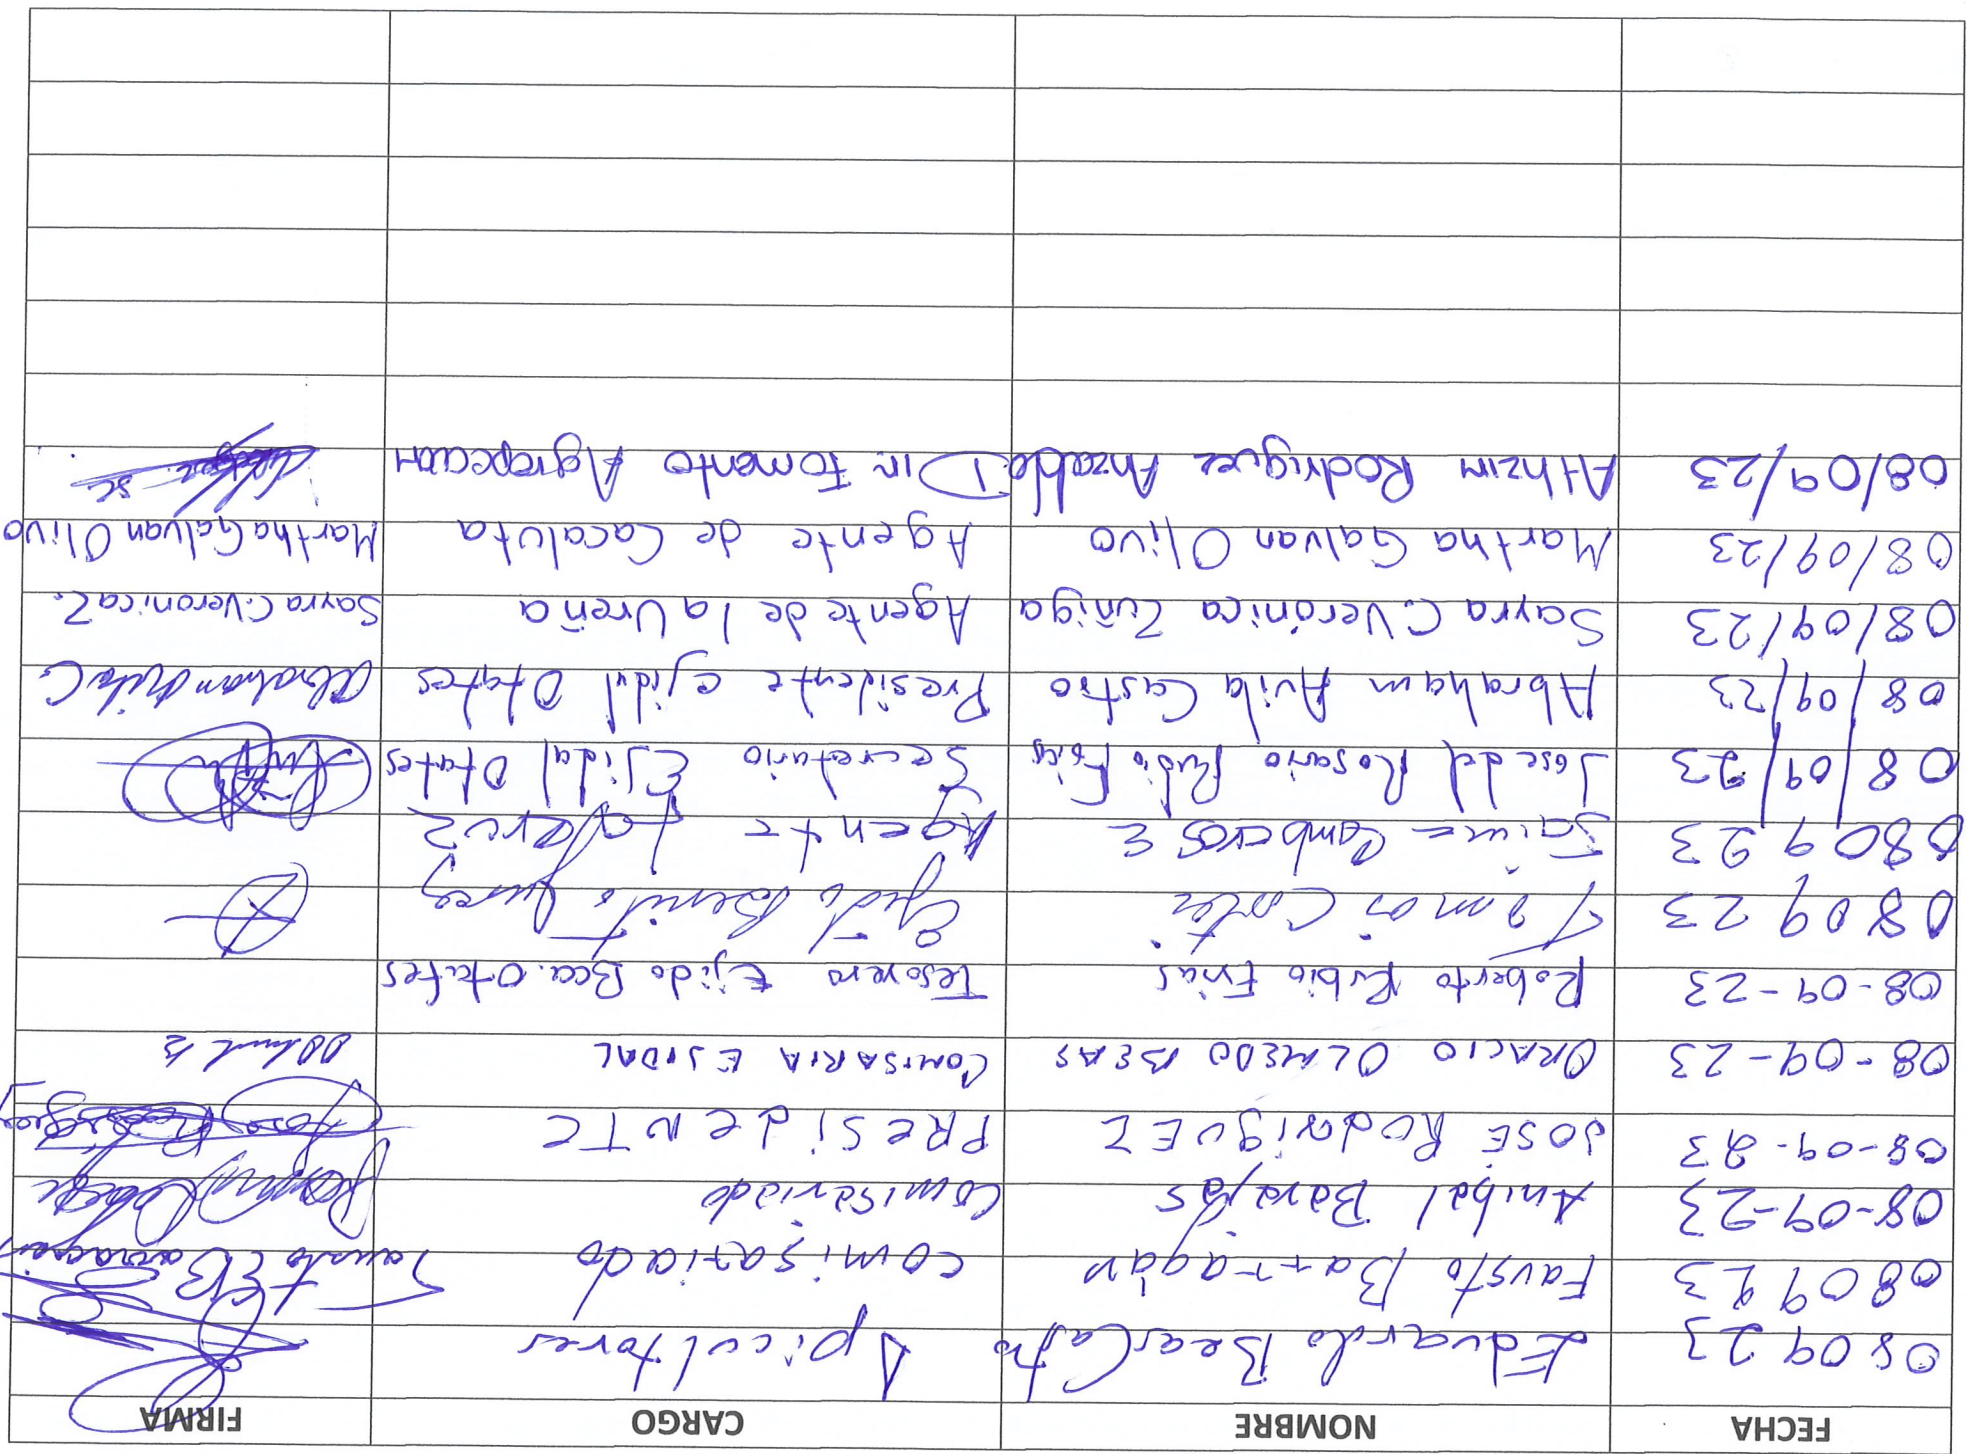 FECHA NOMBRE CARGO FIRMA
08 09 23 Eduardo Beas Castro Apicultores
08 09 23 Fausto Barragán comisariado Fausto E Barragan
08-09-23 Anibal Barajas Comisariado
08-09-23 JOSE RodriguEZ PRESidENTE Jose Rodriguez
08-09-23 ORACIO OLMEDO BEAS COMISARIA EJIDAL
08-09-23 Roberto Rubio Frias Tesorero Ejido Bca. Otates
08 09 23 Ramos Cortez Ejido Benito Juarez
08 09 23 Jaime Camberos E Agente
08/09/23 Jose del Rosario Rubio Frias Secretario Ejidal Otates
08/09/23 Abraham Avila Castro Presidente ejidal Otates Abraham Avila C.
08/09/23 Sayra C. Verónica Zuñiga Agente de la Ureña Sayra C. Veronica Z.
08/09/23 Martha Galvan Olivo Agente de Cacaluta Martha Galvan Olivo
08/09/23 Rodriguez Dir Fomento Agropecuar